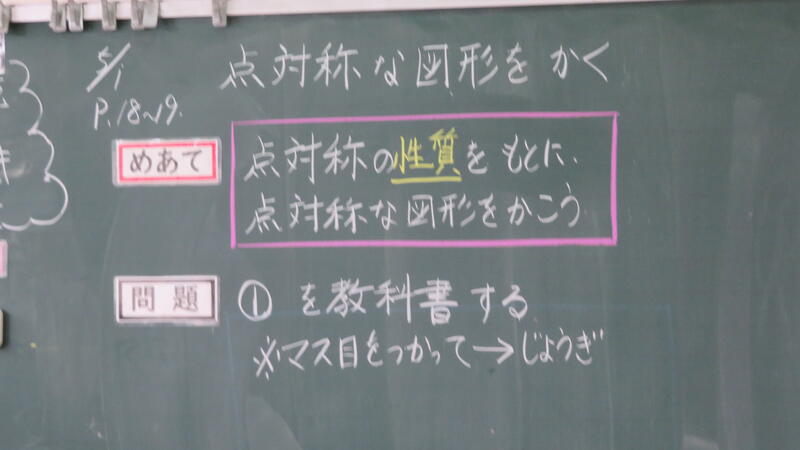 5/1
点対称な図形をかく
P.18~19.
めあて
点対称の性質をもとに、
点対称な図形をかこう
問題
① を教科書する
※マス目をつかって→じょうぎ